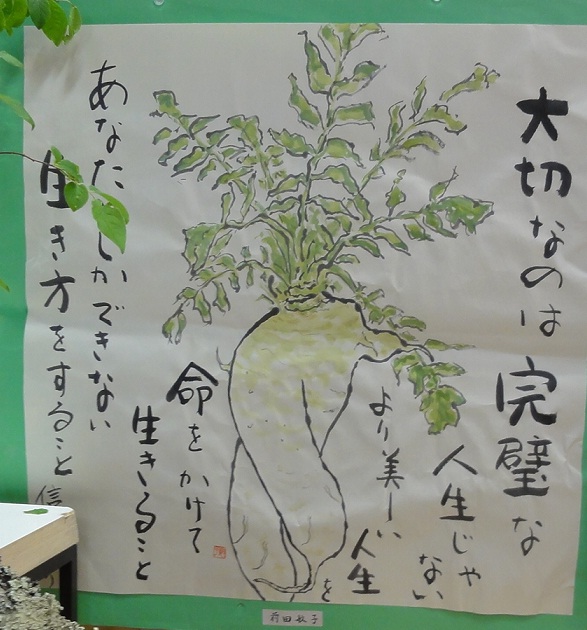 大切なのは
完璧な
人生じゃ
ない
より美しい
人生
を
命をかけて
生きること
あなたしかできない
生き方をすること